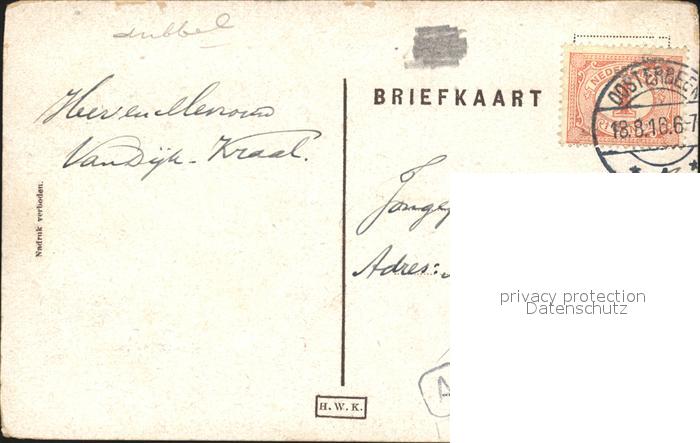 dubbel
BRIEFKAART
NEDERL
OOSTERBEEK
18.8.16.6-7
Heer en Mevrouw
Van Dijk-Kraal.
Adres:
Nadruk verboden.
H. W. K.
A
privacy protection
Datenschutz